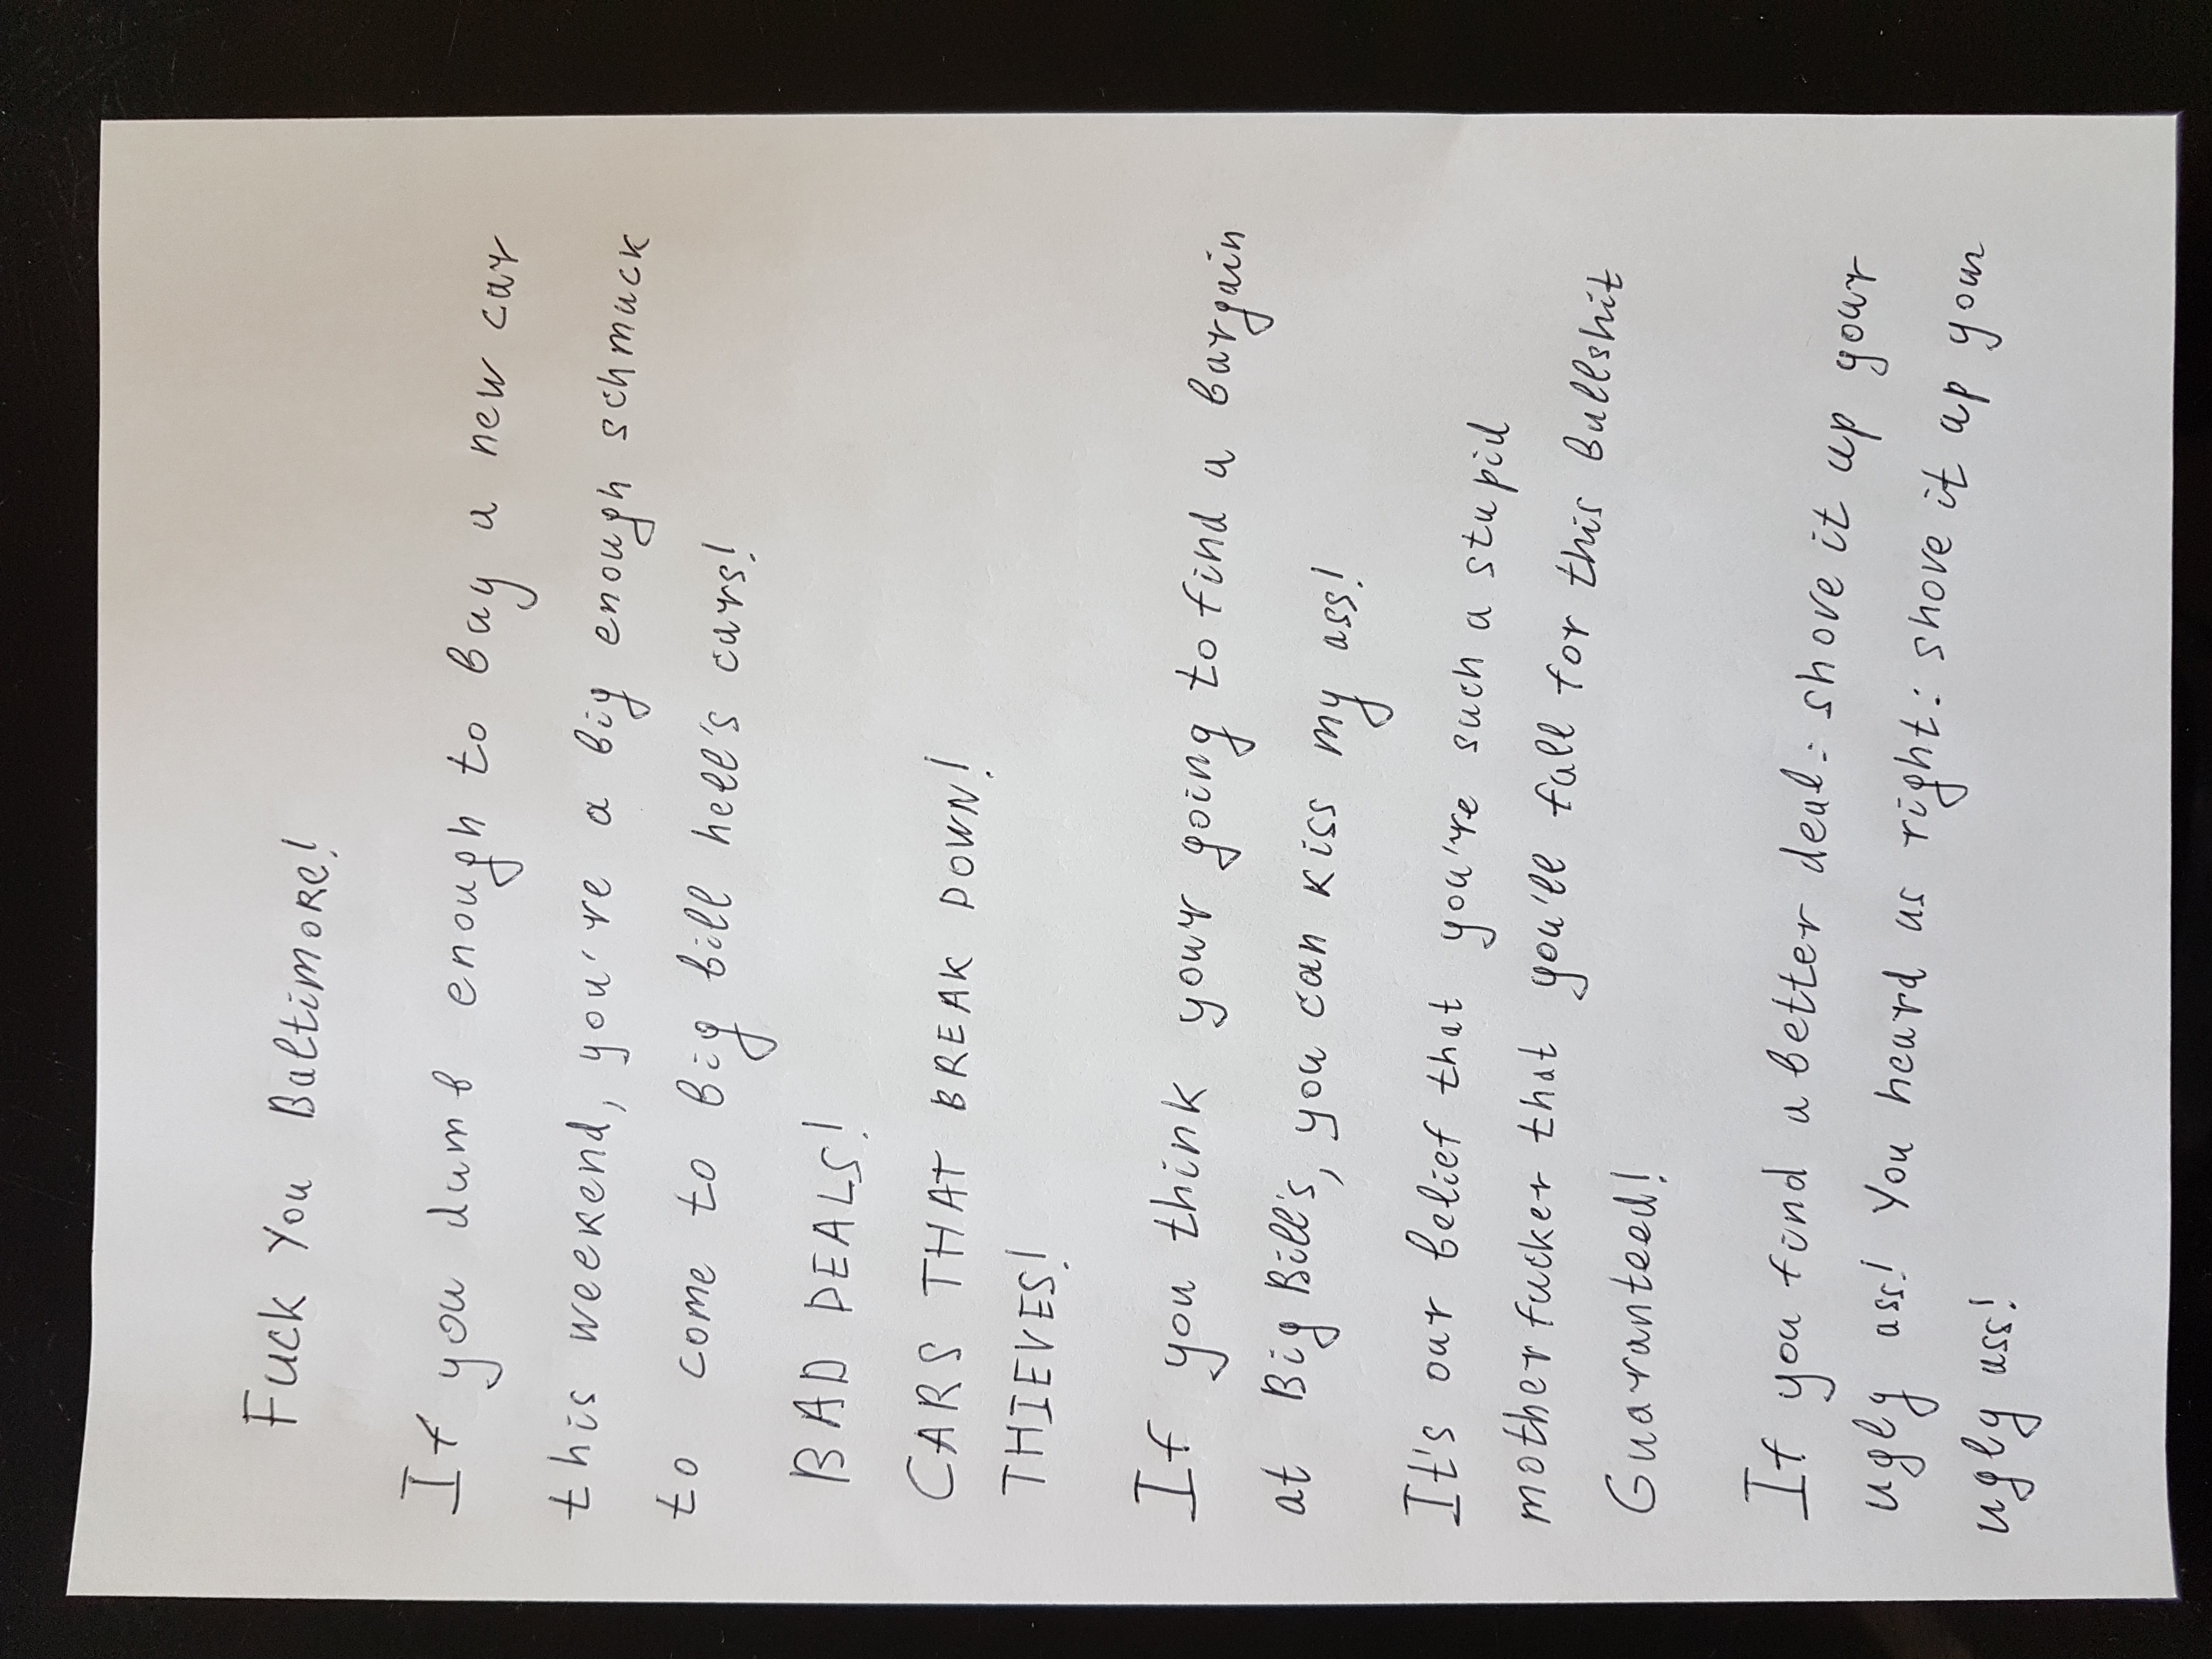 Fuck You Baltimore!
If you dumb enough to buy a new car
this weekend, you're a big enough schmuck
to come to big bill hell's cars!
BAD DEALS!
CARS THAT BREAK DOWN!
THIEVES!
If you think your going to find a bargain
at Big Bill's, you can kiss my ass!
It's our belief that you're such a stupid
motherfucker that you'll fall for this bullshit
Guaranteed!
If you find a better deal: shove it up your
ugly ass! You heard us right: shove it up your
ugly ass!